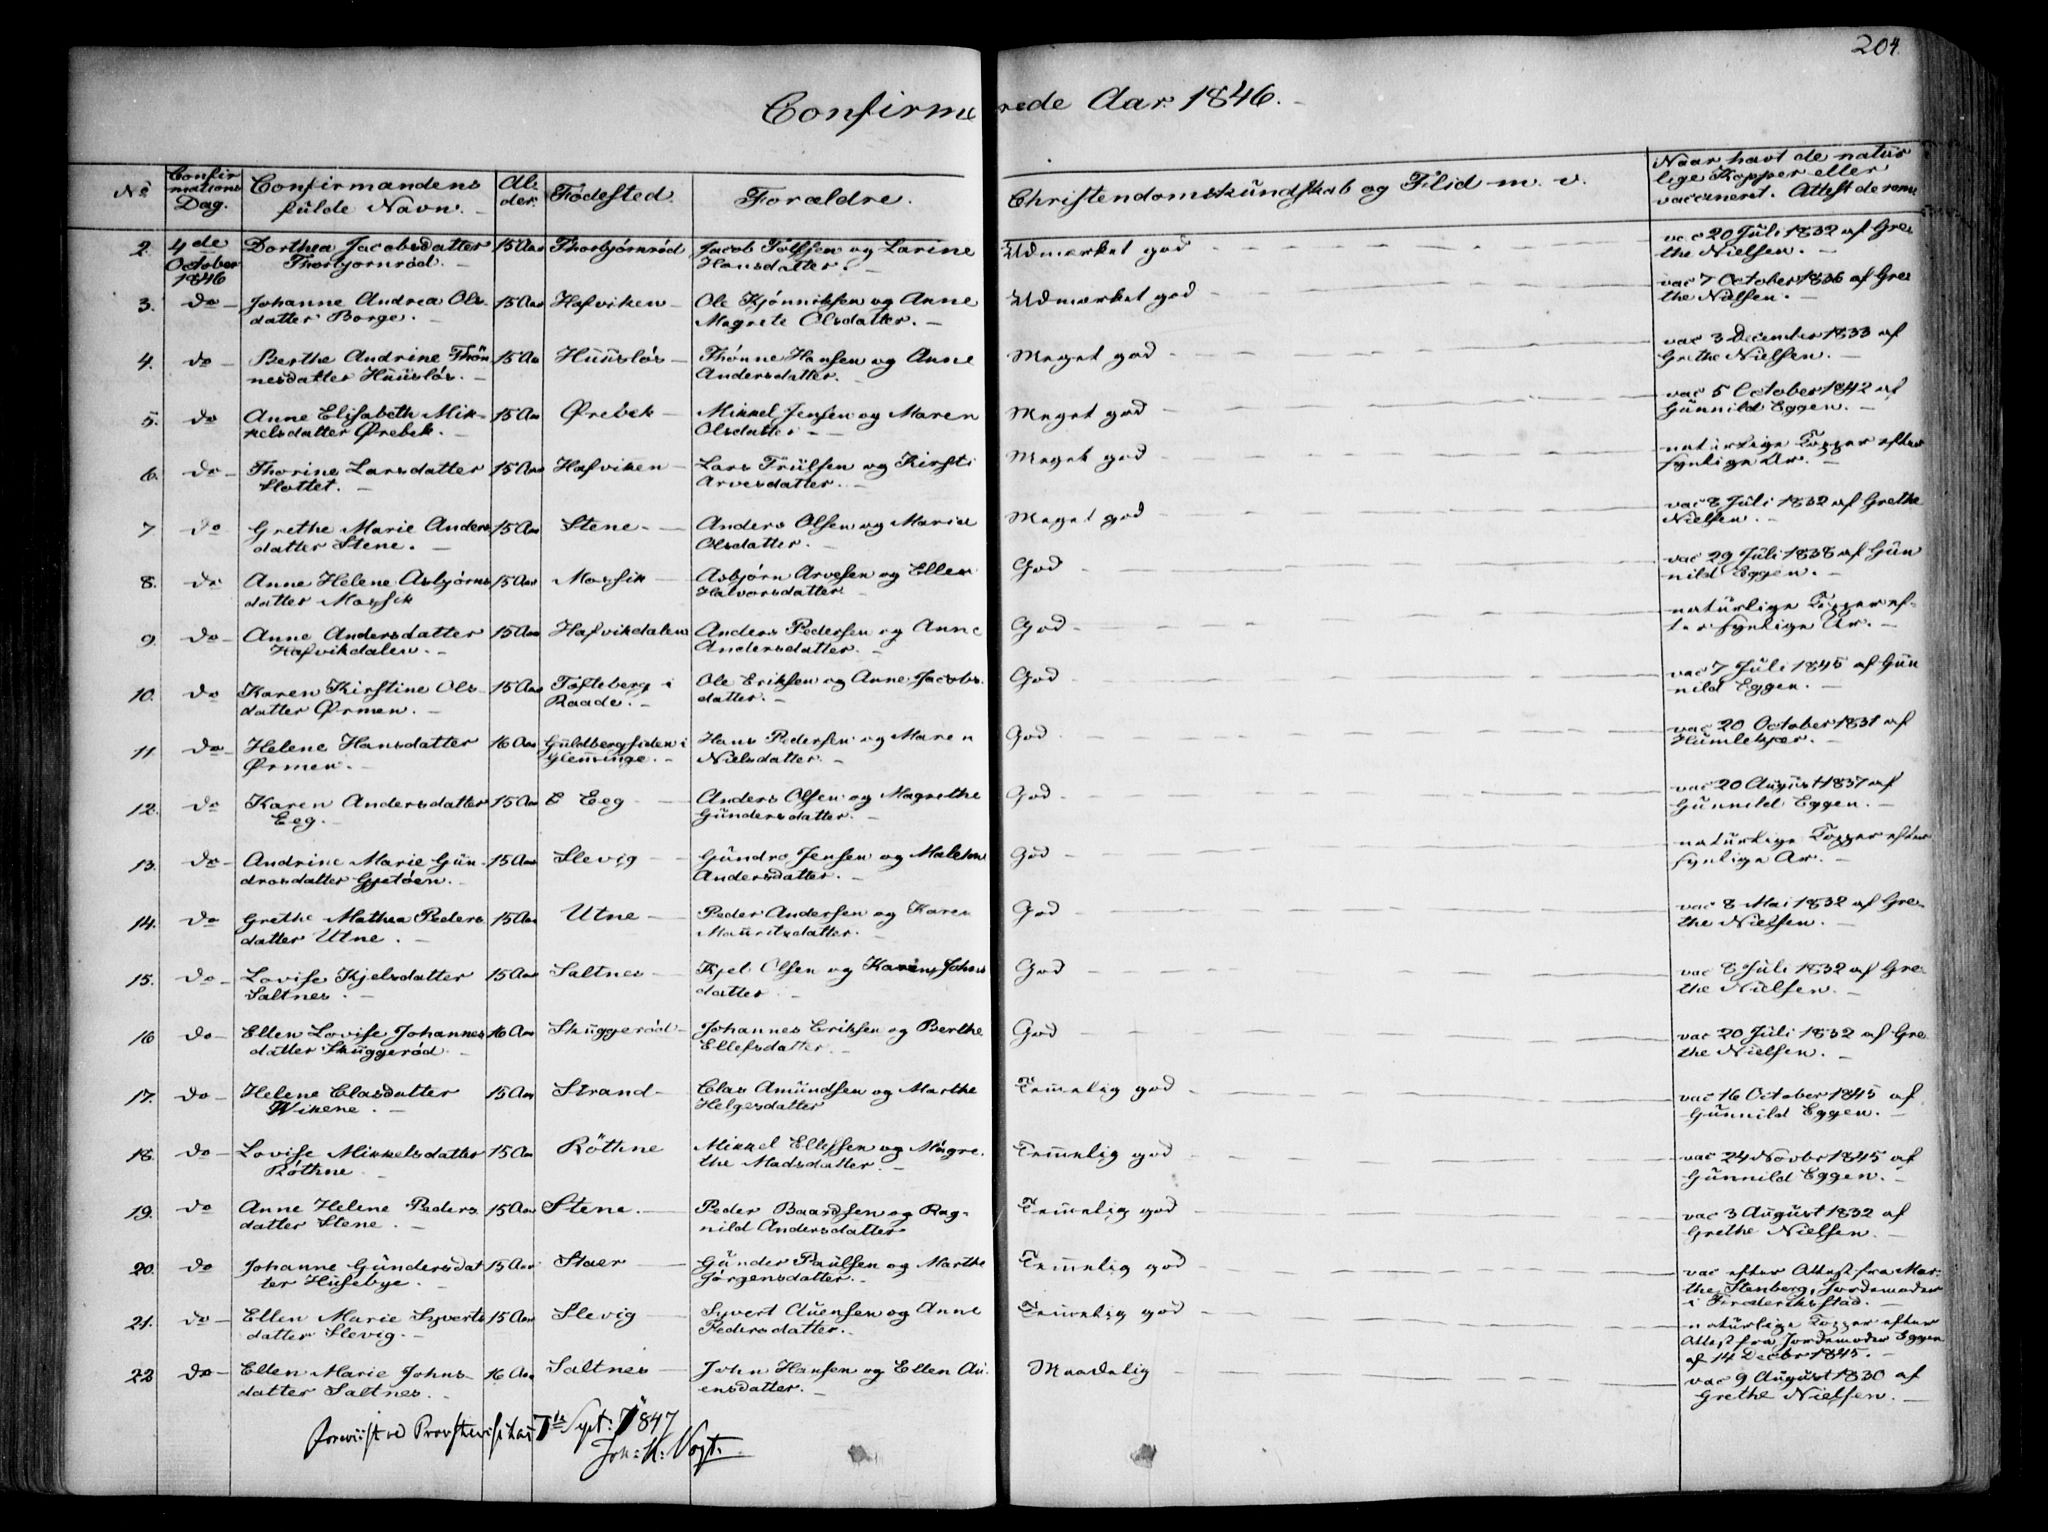 204.
Confirmerede Aar 1846.
No Confirmations Dag. Confirmandens fulde Navn. Alder. Fødested. Forældre. Christendomskundskab og Flid m. v. Naar havt de naturlige Kopper eller vaccineret. Attest derom
2. 4de Dorthea Jacobsdatter 15 Aar Thorbjørnrød Jacob Tolfsen og Larine Udmærket god vac 20 Juli 1832 af Gre-
October 1846 Thorbjørnrød. Hansdatter. the Nielsen.
3. do Johanne Andrea Ols- 15 Aar Hafviken Ole Kjønniksen og Anne Udmærket god vac 7 October 1836 af Gre-
datter Borge. Magrete Olsdatter. the Nielsen.
4. do Berthe Andrine Thøn- 15 Aar Huusløs Thønne Hansen og Anne Meget god vac 3 December 1833 af
nesdatter Huusløs. Andersdatter. Grethe Nielsen.
5. do Anne Elisabeth Mik- 15 Aar Ørebek Mikkel Jensen og Maren Meget god vac 5 October 1842 af
kelsdatter Ørebek. Olsdatter Gunnild Eggen.
6. do Thorine Larsdatter 15 Aar Hafviken Lars Trulsen og Kirsti Meget god naturlige Kopper efter
Slottet. Arvesdatter. synlige Ar.
7 do Grethe Marie Anders 15 Aar Stene Anders Olsen og Maria Meget god vac 8 Juli 1832 af Grethe
datter Stene. Olsdatter. Nielsen.
8. do Anne Helene Asbjørns 15 Aar Mossik Asbjørn Arvesen og Ellen God vac 29 Juli 1838 af Gun
datter Mossik Halvorsdatter nild Eggen.
9. do Anne Andersdatter 15 Aar Hafvikdalen Anders Pedersen og Anne God naturlige Kopper ef-
Hafvikdalen. Andersdatter. ter synlige Ar.
10. do Karen Kirstine Ols- 15 Aar Tofteberg i Ole Eriksen og Anne Jacobs- God vac 7 Juli 1845 af Gun
datter Ørmen. Raade. datter. nild Eggen.
11 do Helene Hansdatter 16 Aar Guldbergsiden i Hans Pedersen og Maren God vac 20 October 1831 af
Ørmen. Glemminge. Nielsdatter. Humlekjær.
12. do Karen Andersdatter 15 Aar E Eeg Anders Olsen og Magrethe God vac 20 August 1837 af
Eeg. Gundersdatter. Gunnild Eggen.
13. do Andrine Marie Gun- 15 Aar Slevig Gundro Jensen og Malene God naturlige Kopper efter
drosdatter Gjetøen. Andersdatter. synlige Ar.
14. do Grethe Mathea Peders 15 Aar Utne Peder Andersen og Karen God vac 8 Mai 1832 af Gre-
datter Utne. Mauritsdatter. the Nielsen.
15. do Lovise Kjelsdatter 15 Aar Saltnes Kjel Olsen og Karen Johns God vac 8 Juli 1832 af Gre-
Saltnes. datter the Nielsen.
16 do Ellen Lovise Johannes 16 Aar Skuggerød Johannes Eriksen og Berthe God vac 20 Juli 1832 af Gre-
datter Skuggerød. Ellefsdatter. the Nielsen.
17. do Helene Clasdatter 15 Aar Strand Clas Amundsen og Marthe Temmelig god vac 16 October 1845 af
Wikene. Helgesdatter Gunnild Eggen.
18. do Lovise Mikkelsdatter 15 Aar Röthne Mikkel Ellefsen og Magre- Temmelig god vac 24 Novbr 1845 af
Röthne. the Madsdatter. Gunnild Eggen.
19. do Anne Helene Peders 15 Aar Stene. Peder Baardsen og Rag- Temmelig god vac 3 August 1832 af
datter Stene. nild Andersdatter Grethe Nielsen.
20. do Johanne Gundersdat 15 Aar Staer Gunder Paulsen og Marthe Temmelig god vac efter Attest fra Mar-
ter Husebye. Jørgensdatter. the Stenberg, Jordemoder
i Frederiksstad.
21. do Ellen Marie Syverts 15 Aar Slevig Syvert Auensen og Anne Temmelig god naturlige Kopper efter
datter Slevig. Pedersdatter. Attest fra Jordemoder Eggen
af 14 Decbr 1845.
22 do Ellen Marie Johns- 16 Aar Saltnes John Hansen og Ellen Au- Maadelig vac 9 August 1830 af
datter Saltnes. ensdatter. Grethe Nielsen.
foreviist ved Provstevisitats 7de Sept: 1847
Joh: K: Vogt.